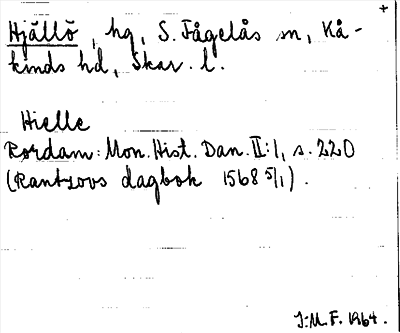 +
Hjällö, hg, S. Fågelås sn, Kå-
kinds hd, Skar. l.
Hielle
Rordam: Mon. Hist. Dan. II:1, s. 220
(Rantzovs dagbok 1568 5/1).
J:M.F. 1964.